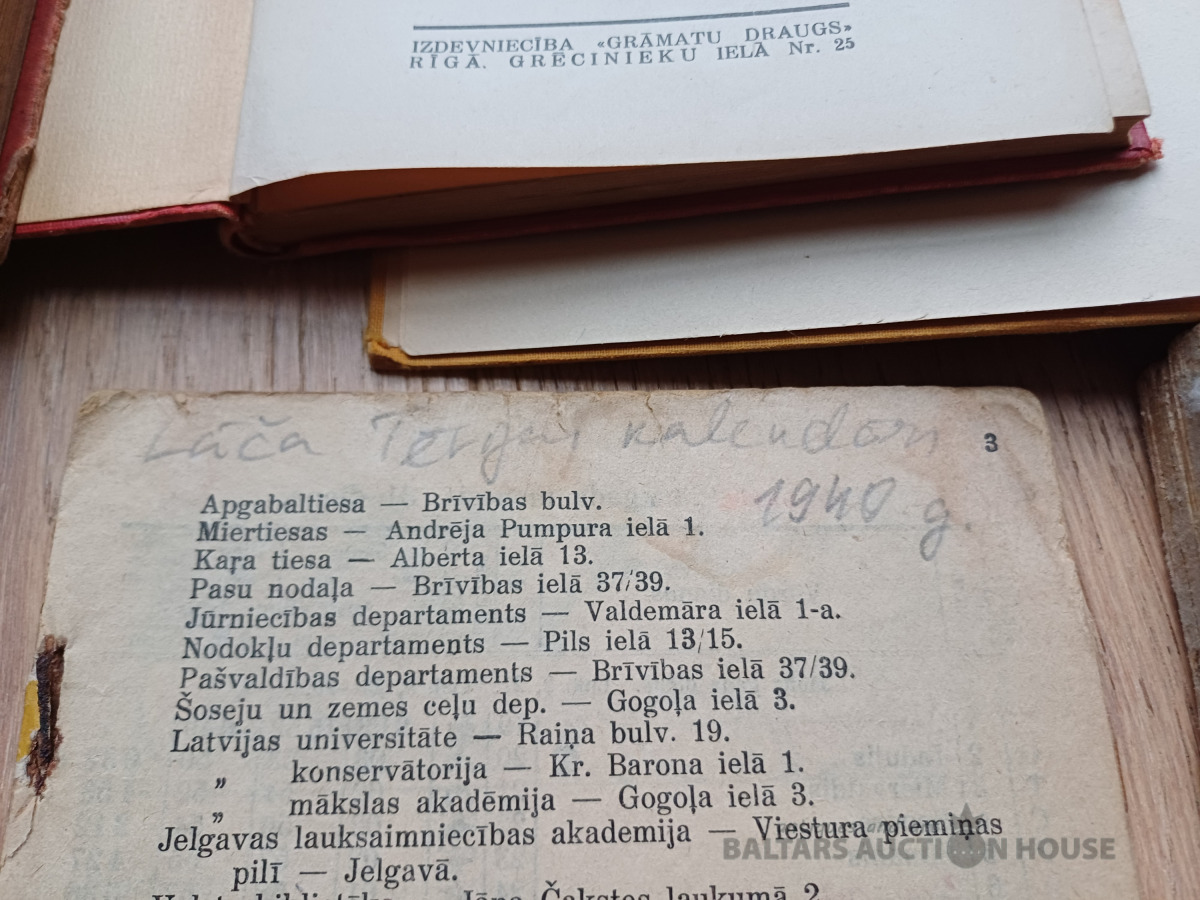 IZDEVNIECĪBA «GRĀMATU DRAUGS»
RĪGĀ. GRĒCINIEKU IELĀ Nr. 25
Lāča kalendārs
3
1940 g.
Apgabaltiesa — Brīvības bulv.
Miertiesas — Andrēja Pumpura ielā 1.
Kaŗa tiesa — Alberta ielā 13.
Pasu nodaļa — Brīvības ielā 37/39.
Jūrniecības departaments — Valdemāra ielā 1-a.
Nodokļu departaments — Pils ielā 13/15.
Pašvaldības departaments — Brīvības ielā 37/39.
Šoseju un zemes ceļu dep. — Gogoļa ielā 3.
Latvijas universitāte — Raiņa bulv. 19.
„ konservātorija — Kr. Barona ielā 1.
„ mākslas akadēmija — Gogoļa ielā 3.
Jelgavas lauksaimniecības akademija — Viestura piemiņas
pilī — Jelgavā.
Čakstes laukumā 2.
BALTARS AUCTION HOUSE